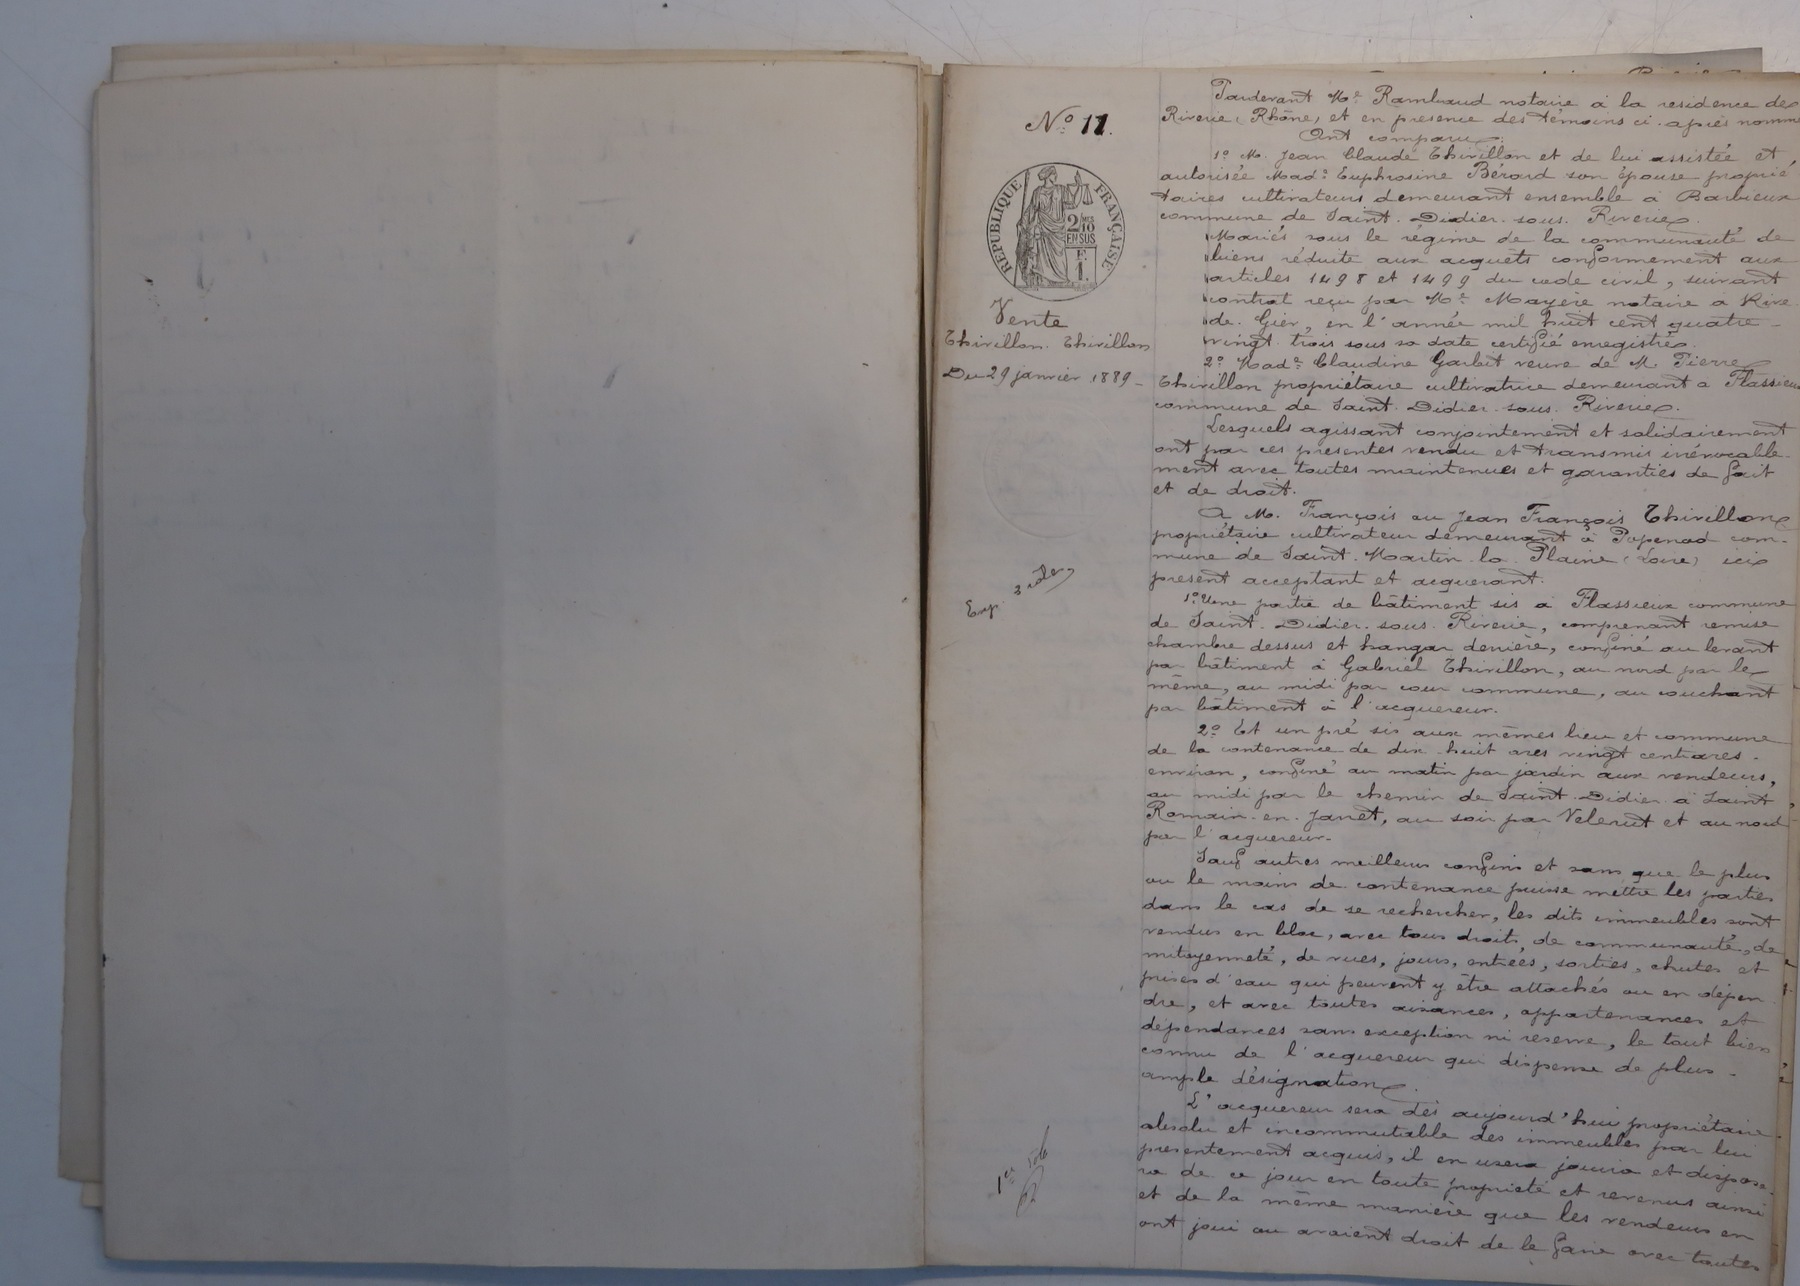 No 11.
REPUBLIQUE FRANÇAISE
2/10 MES
EN SUS
F.
1.
Vente
Thivillon. Thivillon
Du 29 janvier 1889 -
Exp. 3 roles
1er role
Pardevant Me Rambaud notaire à la residence de
Riverie (Rhône) et en presence des témoins ci-après nommé
Ont comparu
1o M. Jean Claude Thivillon et de lui assistée et
autorisée Made Euphrosine Bérard son épouse proprié
taires cultivateurs demeurant ensemble à Barbieux
commune de Saint-Didier-sous-Riverie.
Mariés sous le régime de la communauté de
biens réduite aux acquets conformement aux
articles 1498 et 1499 du code civil, suivant
contrat reçu par Me Mayère notaire a Rive
de-Gier, en l'année mil huit cent quatre-
vingt trois sous sa date certifié enregistré.
2o Made Claudine Garbit veuve de M. Pierre
Thivillon propriétaire cultivatrice demeurant a Flassieux
commune de Saint-Didier-sous-Riverie.
Lesquels agissant conjointement et solidairement
ont par ces presentes vendu et transmis irrévocable-
ment avec toutes maintenues et garanties de fait
et de droit.
A M. François ou Jean François Thivillon
propriétaire cultivateur demeurant à Popenod com-
mune de Saint-Martin-la-Plaine (Loire) ici
present acceptant et acquerant.
1o Une partie de bâtiment sis à Flassieux commune
de Saint-Didier-sous-Riverie, comprenant remise
chambre dessus et hangar derrière, confiné au levant
par bâtiment à Gabriel Thivillon, au nord par le
même, au midi par cour commune, au couchant
par bâtiment à l'acquereur.
2o Et un pré sis aux mêmes lieu et commune
de la contenance de dix-huit ares vingt centiares-
environ, confiné au matin par jardin aux vendeurs,
au midi par le chemin de Saint-Didier à Saint
Romain-en-Jarret, au soir par Velerut et au nord
par l'acquereur.
Sauf autres meilleurs confins et sans que le plus
ou le moins de contenance puisse mettre les parties
dans le cas de se rechercher, les dits immeubles sont
vendus en bloc, avec tous droits, de communauté, de
mitoyenneté, de vues, jours, entrées, sorties, chutes et
prises d'eau qui peuvent y être attachés ou en dépen
dre, et avec toutes aisances, appartenances et
dépendances sans exception ni reserve, le tout bien
connu de l'acquereur qui dispense de plus-
ample désignation.
L'acquereur sera dès aujourd'hui propriétaire
absolu et incommutable des immeubles par lui
presentement acquis, il en usera jouira et dispose-
ra de ce jour en toute propriété et revenus ainsi
et de la même manière que les vendeurs en
ont joui ou avaient droit de le faire avec toutes